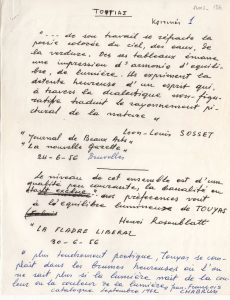 TOUYAS
1
"... de son travail se réfracte la
poésie colorée du ciel, des eaux, de
la verdure. De ses tableaux émane
une impression d'armonie d'équili-
bre, de lumière. Ils expriment la
detente heureuse d'un esprit qui
à travers la dialectique non-figu-
rative traduit le rayonnement pi-
ctural de la nature "
Leon-Louis SOSSET
"Journal de Beaux Arts"
"La nouvelle Gazette"
24-6-56 Bruxelles
Le niveau de cet ensemble est d'une
qualité peu courante, la banalité en
étant exclue préférences vont
à l'équilibre lumineux de TOUYAS
Henri Rosenblatt
"LA FLADRE LIBERAL
30-6-56
" plus tendrement poetique, Touyas se com-
plait dans les brumes heureuses où l'on
ne sait plus si la lumière nait de la cou-
leur ou la couleur de la lumière Jean-François
catalogue septembre 1962 CHABRUN